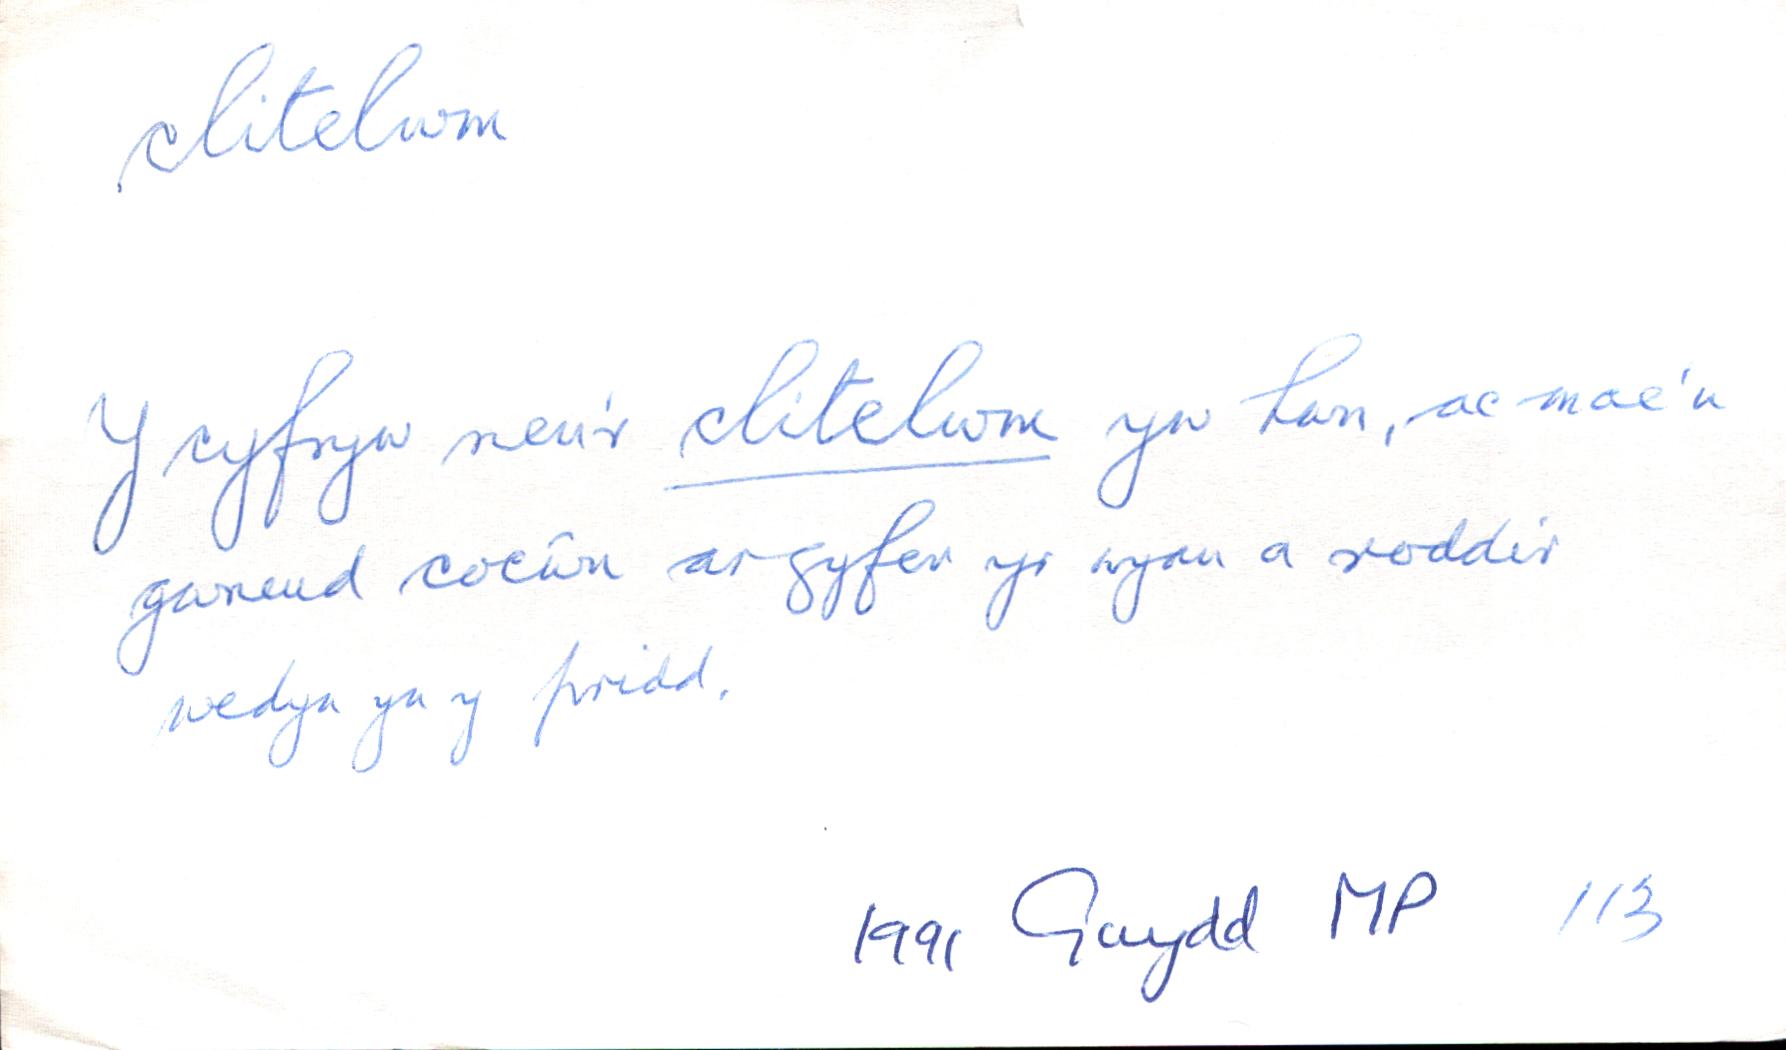 clitelwm
Y cyfryw neu'r clitelwm yw hwn, ac mae'n
gwneud cocŵn ar gyfer yr wyau a roddir
wedyn yn y pridd.
1991 Gwydd MP 113